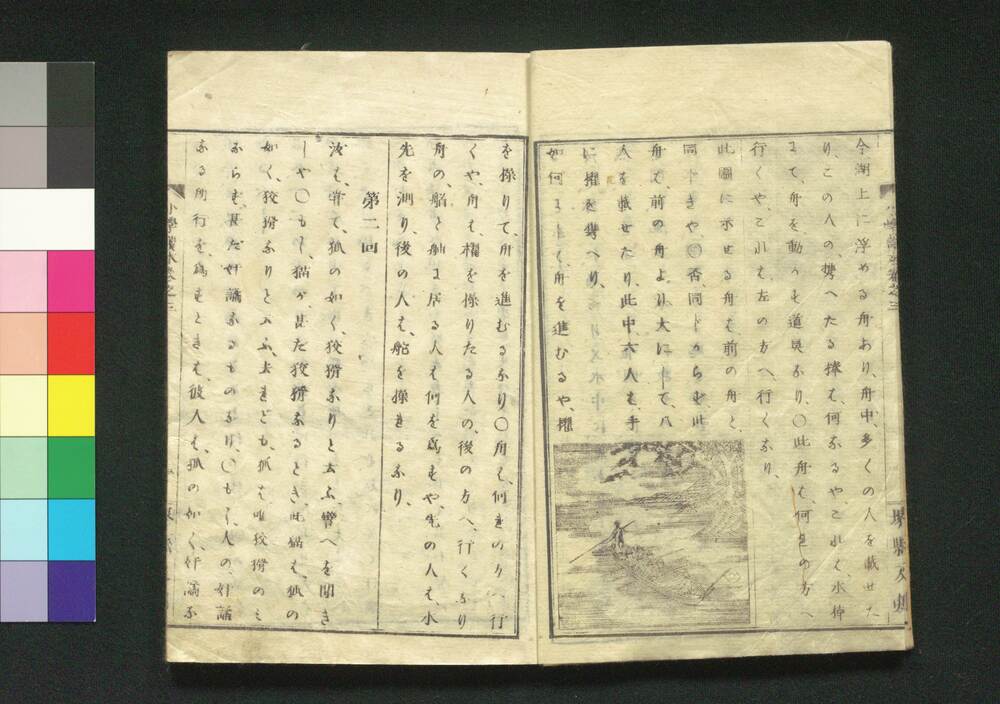 今湖上に浮める舟あり、舟中、多くの人を載せた
り、この人の携へたる棹は、何なるや、これは、水棹
にて、舟を動かす道具なり、〇此舟は、何れの方へ
行くや、これは、左の方へ、行くなり、
此圖に示せる舟は、前の舟と、
同じきや、〇否、同じからず、此
舟は、前の舟より、大にして、八
人を載せたり、此中六人は、手
に櫂を携へり、
如何にして、舟を進むるや、櫂
を操りて、舟を進むるなり〇舟は、何れの方へ行
くや、舟は、櫂を操りたる人の、後の方へ、行くなり
舟の、艫と舳に居る人は、何を為すや、先の人は、水
先を測り、後の人は、舵を操るなり、
第二回
汝は、甞て、狐の如く、狡猾なりと云ふ、譬へを聞き
しや〇もし、猫が、甚だ狡猾なるとき、此猫は、狐の
如く、狡猾なりと云ふ、去れども、狐は、唯狡猾のみ
ならず、甚だ奸譎なるものなり、〇もし、人の、奸譎
なる所行を、為すときは、彼人は、狐の如く、奸譎な
小學讀本卷之三